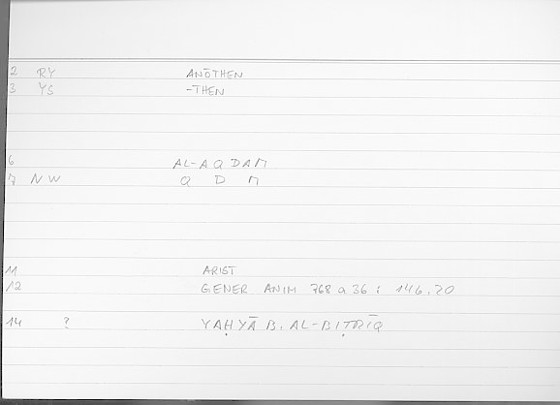 2 RY ANŌTHEN
3 YS -THEN
6 AL-AQDAM
7 NW Q D M
11 ARIST
12 GENER ANIM 768 a 36 : 146.20
14 ? YAḤYĀ B. AL-BIṬRĪQ